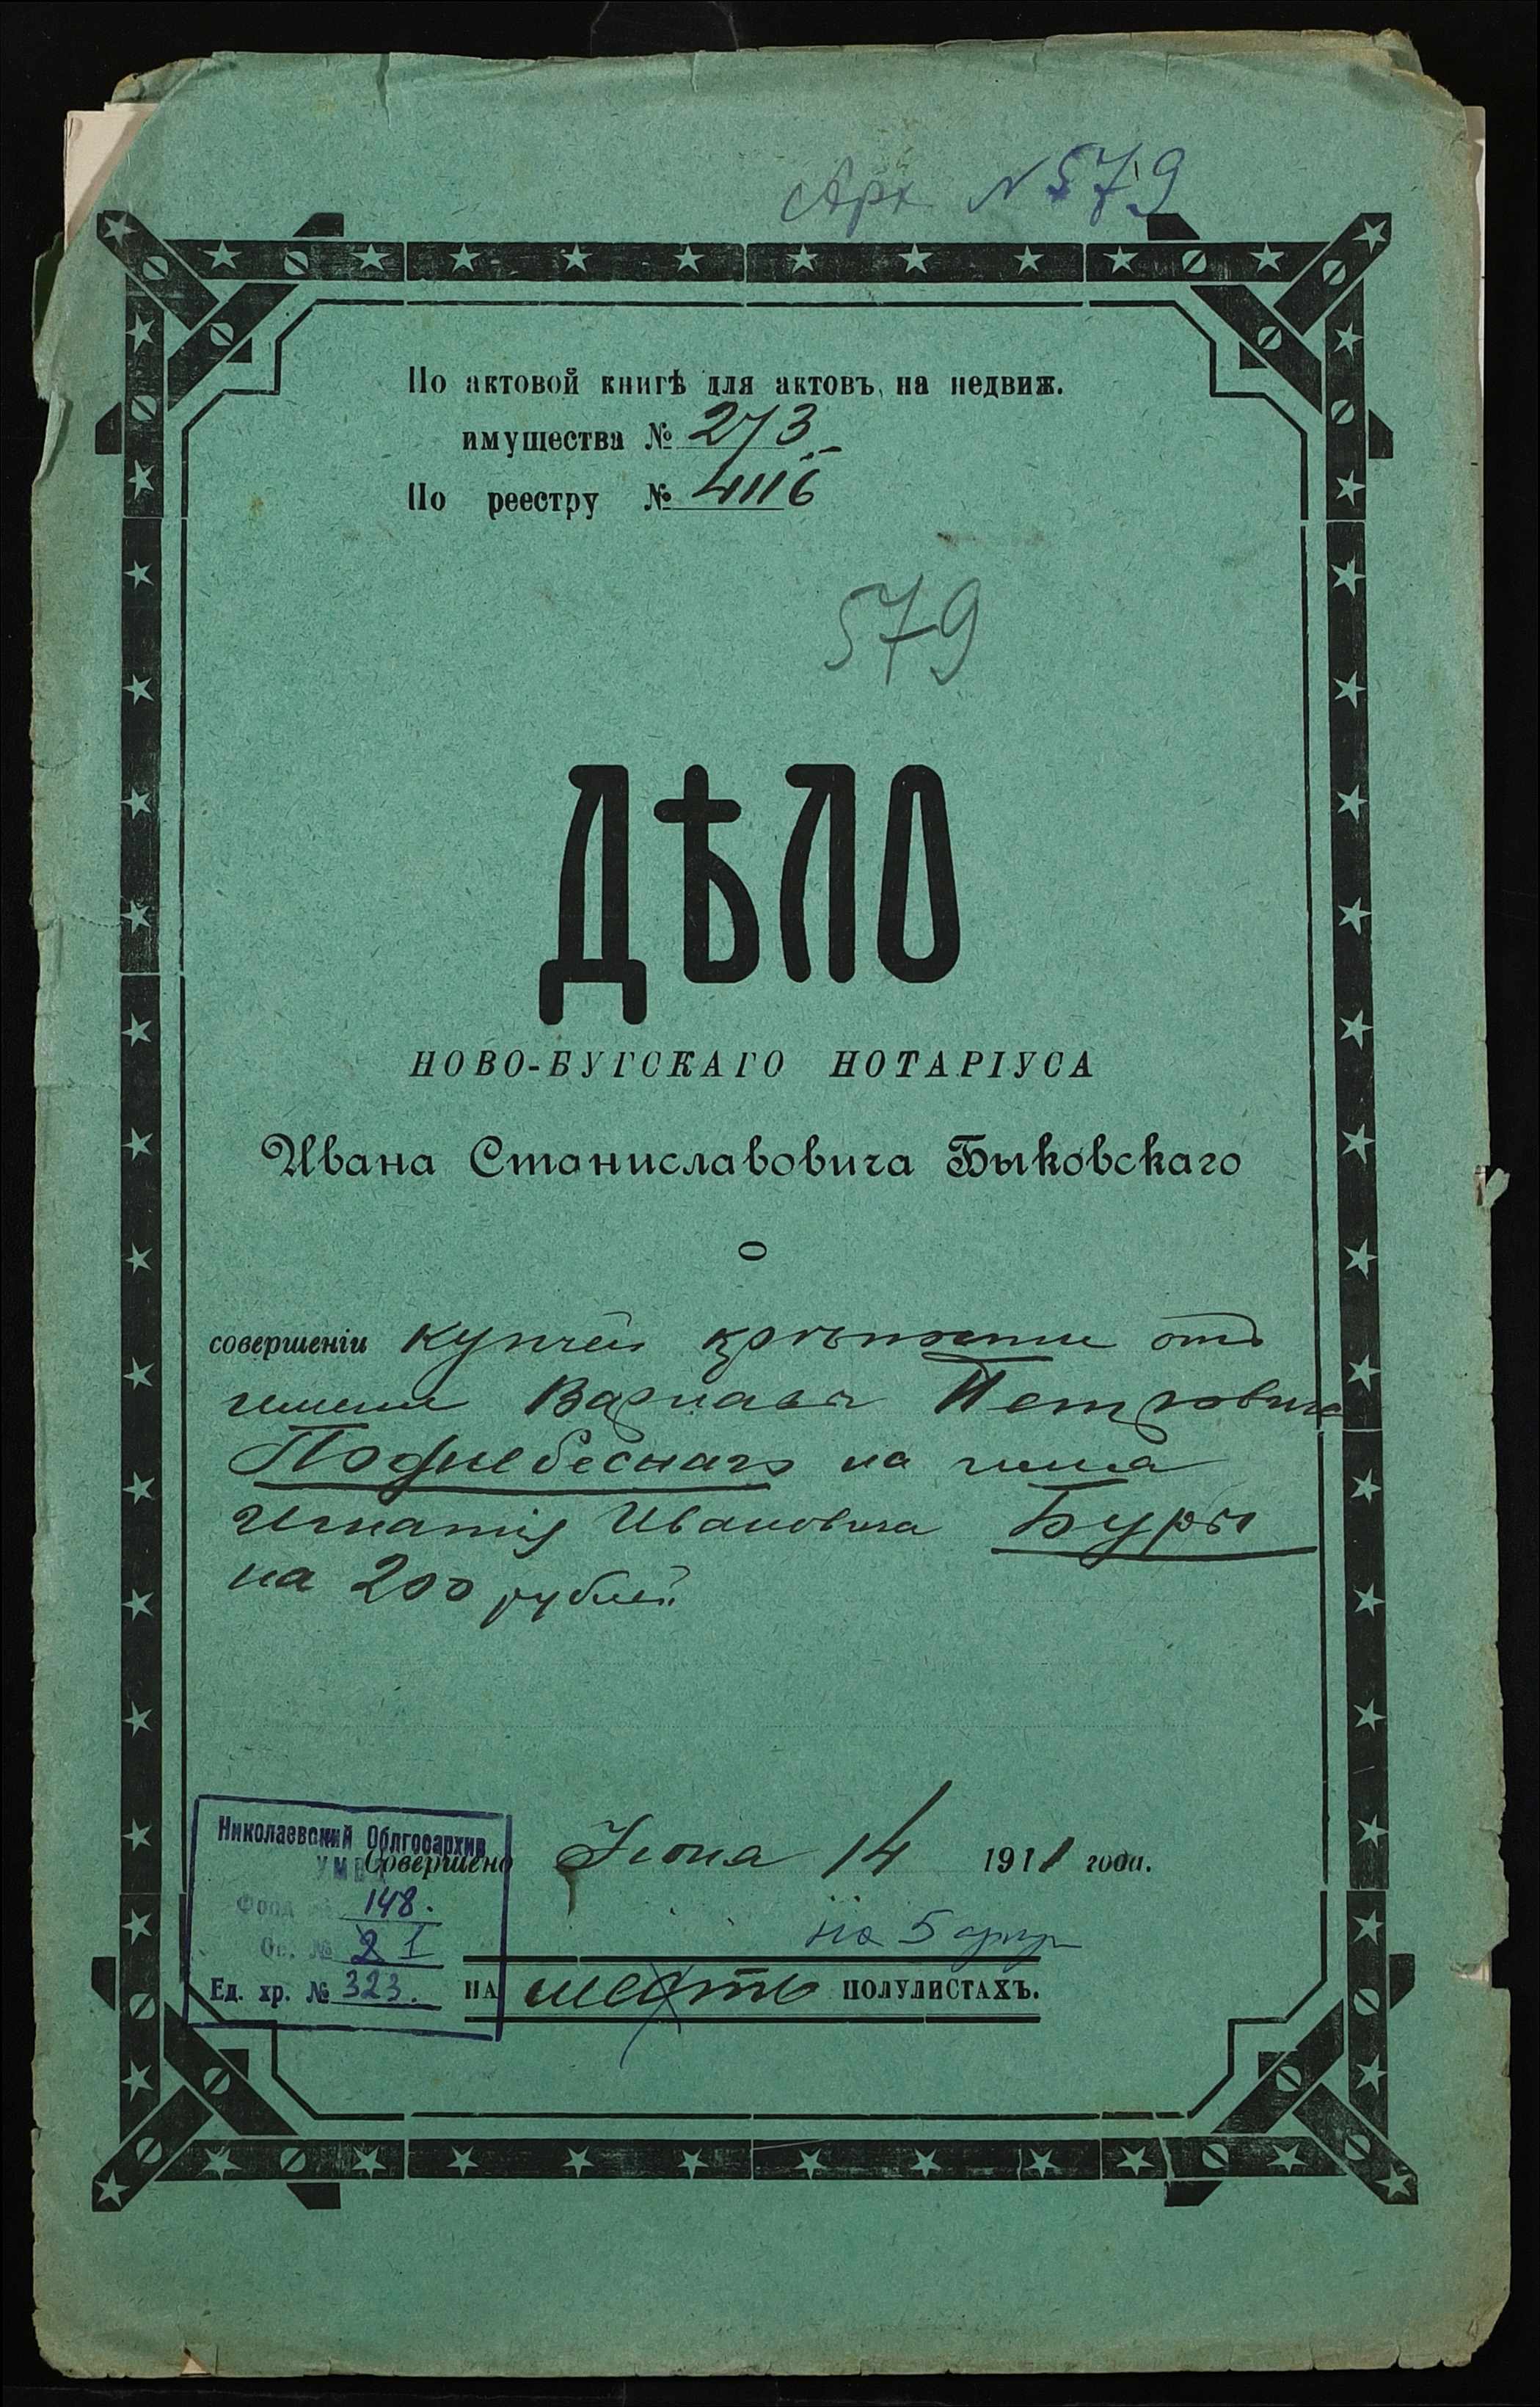 Арх N 579
По актовой книгѣ для актовъ на недвиж.
имущества № 273
По реестру № 4116
579
ДѢЛО
НОВО-БУГСКАГО НОТАРІУСА
Ивана Станиславовича Быковскаго
о
совершеніи купчей крѣпости отъ
имени Варнавы Петровича
Поднебеснаго на имя
Игнатія Ивановича Буры
на 200 рублей
Николаевский Облгосархив
УМВД
Совершено Іюня 14 1911 года.
Фонд № 148.
Оп. № 2 1
на 5
Ед. хр. № 323.
НА шести ПОЛУЛИСТАХЪ.